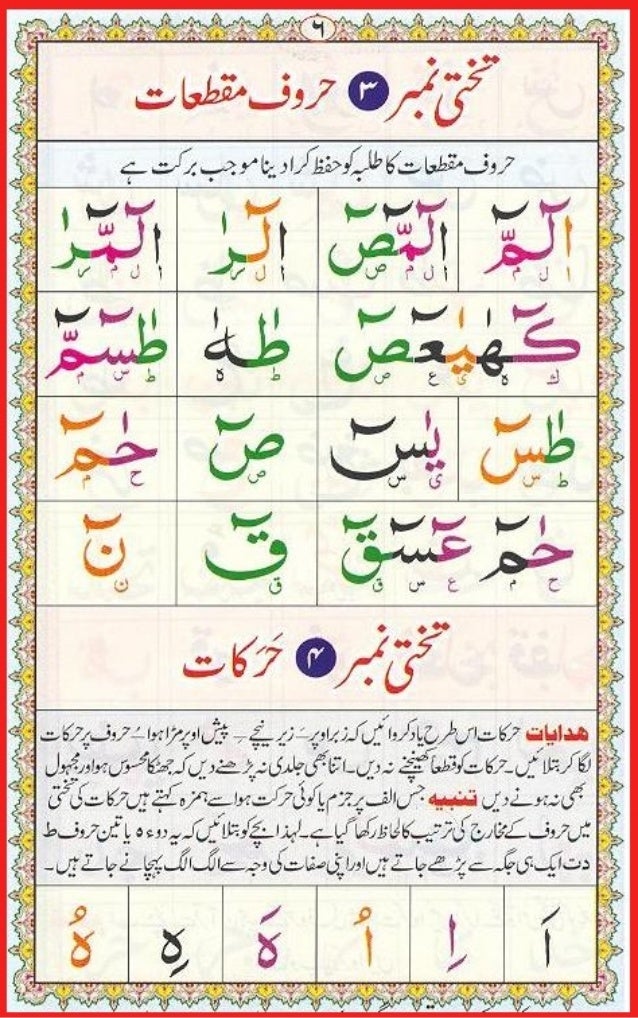 ٦
تختی نمبر ٣ حروف مقطعات
حروف مقطعات کا طلبہ کو حفظ کرا دینا موجب برکت ہے
الٓمّٓ الٓمّٓصٓ الٓرٰ الٓمّٓرٰ
ا ل م ا ل م ص ا ل ر ا ل م ر
کٓهٰیٰعٓصٓ طٰهٰ طٰسٓمّٓ
ك ه ی ع ص ط ه ط س م
طٰسٓ یٰسٓ صٓ حٰمٓ
ط س ی س ص ح م
حٰمٓ عٓسٓقٓ قٓ نٓ
ح م ع س ق ق ن
تختی نمبر ۴ حَرَکات
هدایات حرکات اس طرح یاد کروائیں کہ زبر اوپر ـَ زیر نیچے ـِ پیش اوپر مڑا ہوا ـُ حروف پر حرکات
لگا کر بتلائیں۔ حرکات کو قطعاً کھینچنے نہ دیں۔ اتنا بھی جلدی نہ پڑھنے دیں کہ جھٹکا محسوس ہو اور مجہول
بھی نہ ہونے دیں تنبیه جس الف پر جزم یا کوئی حرکت ہو اسے ہمزہ کہتے ہیں حرکات کی تختی
میں حروف کے مخارج کی ترتیب کا لحاظ رکھا گیا ہے۔ لہذا بچے کو بتلائیں کہ یہ دو ء ہ یا تین حروف ط
د ت ایک ہی جگہ سے پڑھے جاتے ہیں اور اپنی صفات کی وجہ سے الگ الگ پہچانے جاتے ہیں۔
اَ اِ اُ هَ هِ هُ